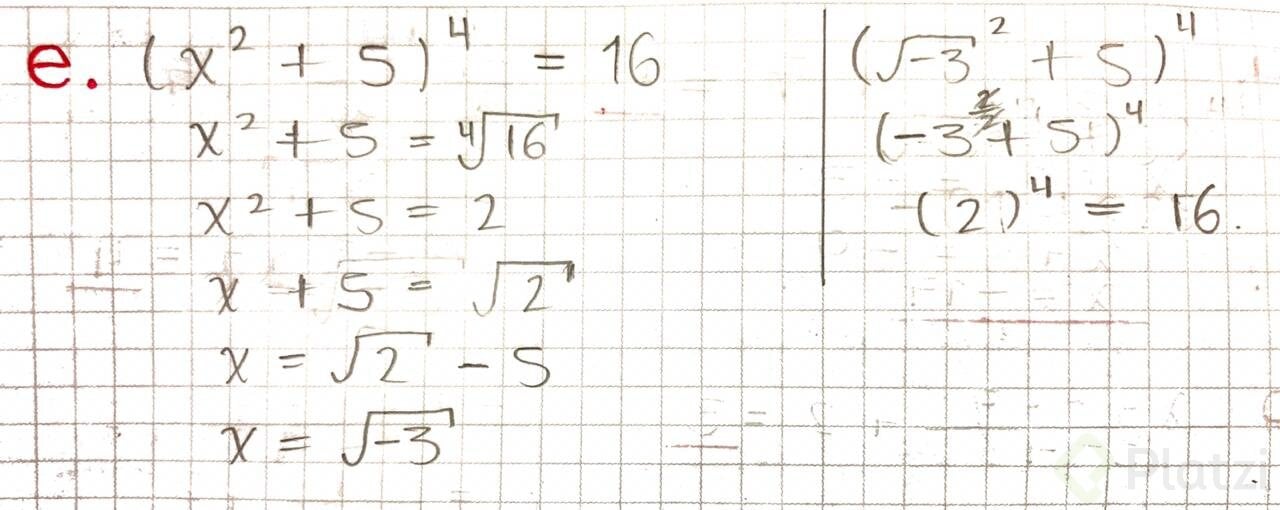 e. (x² + 5)⁴ = 16
x² + 5 = ⁴√16
x² + 5 = 2
x + 5 = √2
x = √2 - 5
x = √-3
(√-3² + 5)⁴
(-3 + 5)⁴
(2)⁴ = 16.
Platzi